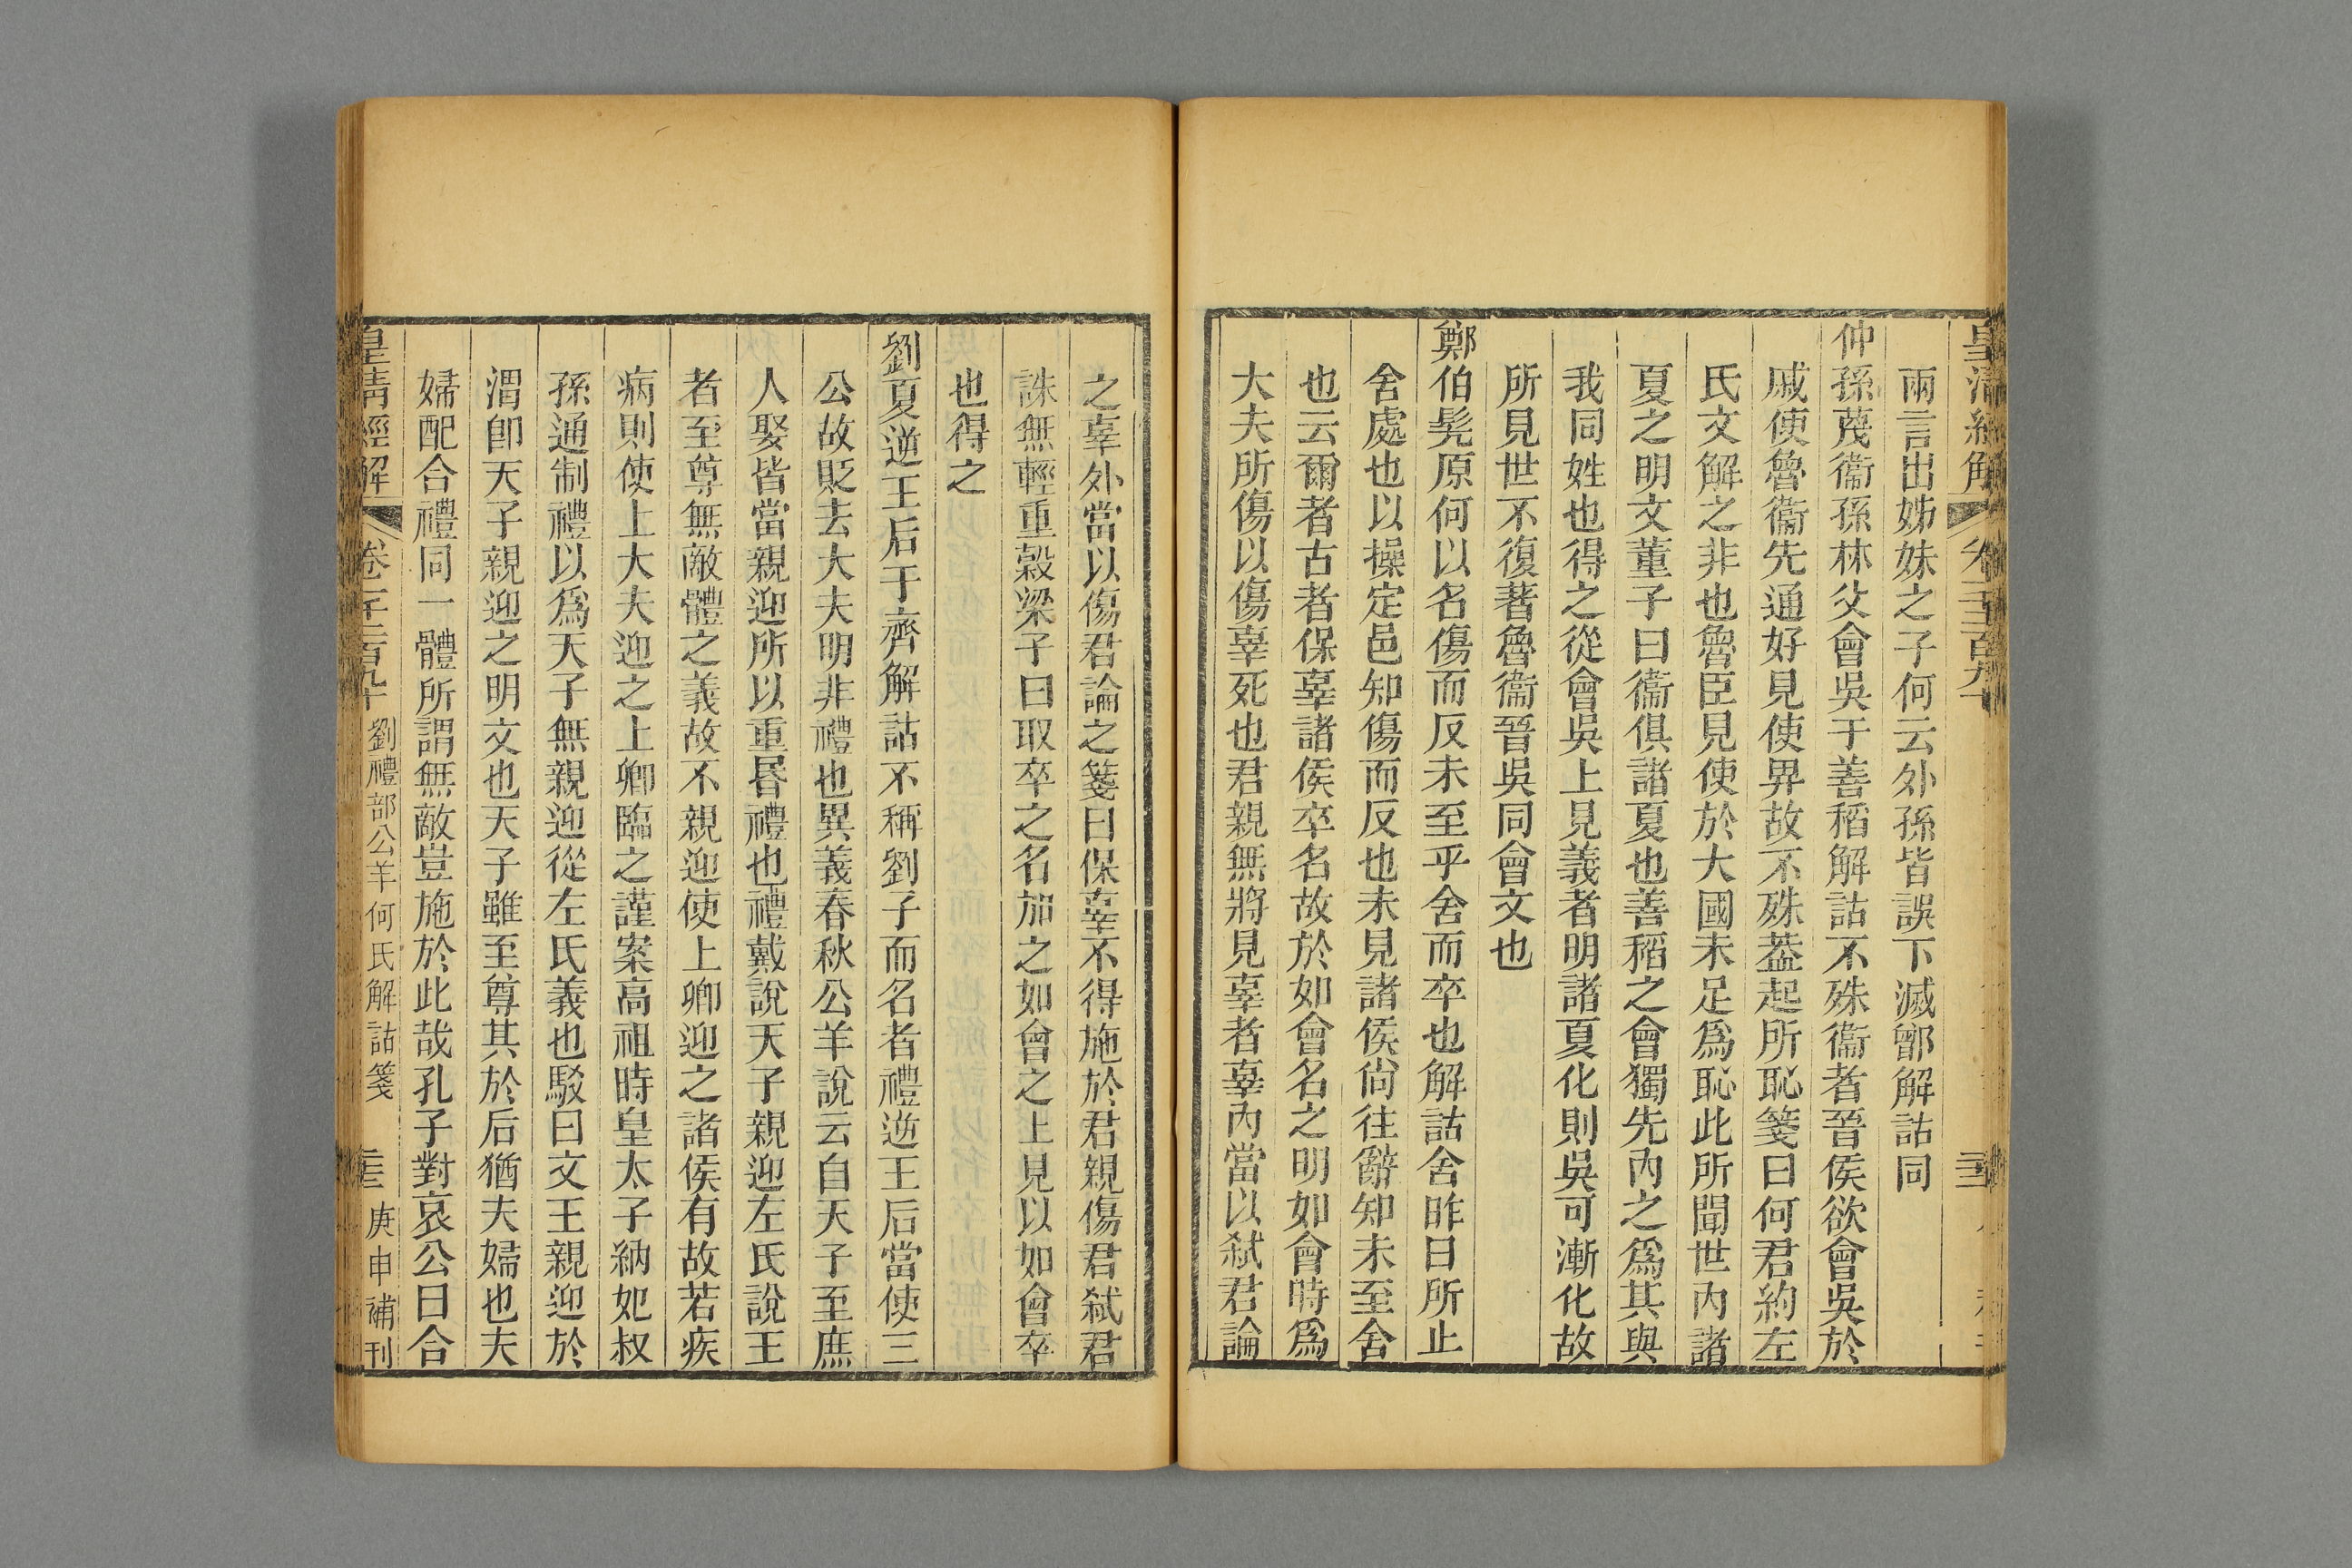 皇清經解
兩言出姊妹之子何云外孫皆誤下滅鄫解詁同
仲孫蔑衞孫林父會吳于善稻解詁不殊衞者晉侯欲會吳於
戚使魯衞先通好見使畀故不殊葢起所恥箋曰何君約左
氏文解之非也魯臣見使於大國未足爲恥此所聞世內諸
夏之明文董子曰衞俱諸夏也善稻之會獨先內之爲其與
我同姓也得之從會吳上見義者明諸夏化則吳可漸化故
所見世不復著魯衞晉吳同會文也
鄭伯髡原何以名傷而反未至乎舍而卒也解詁舍昨日所止
舍處也以操定邑知傷而反也未見諸侯尙往辭知未至舍
也云爾者古者保辜諸侯卒名故於如會名之明如會時爲
大夫所傷以傷辜死也君親無將見辜者辜內當以弑君論
之辜外當以傷君論之箋曰保辜不得施於君親傷君弑君
誅無輕重穀梁子曰取卒之名加之如會之上見以如會卒
也得之
劉夏逆王后于齊解詁不稱劉子而名者禮逆王后當使三
公故貶去大夫明非禮也異義春秋公羊說云自天子至庶
人娶皆當親迎所以重昬禮也禮戴說天子親迎左氏說王
者至尊無敵體之義故不親迎使上卿迎之諸侯有故若疾
病則使上大夫迎之上卿臨之謹案高祖時皇太子納妃叔
孫通制禮以爲天子無親迎從左氏義也駁曰文王親迎於
渭卽天子親迎之明文也天子雖至尊其於后猶夫婦也夫
婦配合禮同一體所謂無敵豈施於此哉孔子對哀公曰合
皇清經解 卷千二百九十 劉禮部公羊何氏解詁箋 庚申補刊